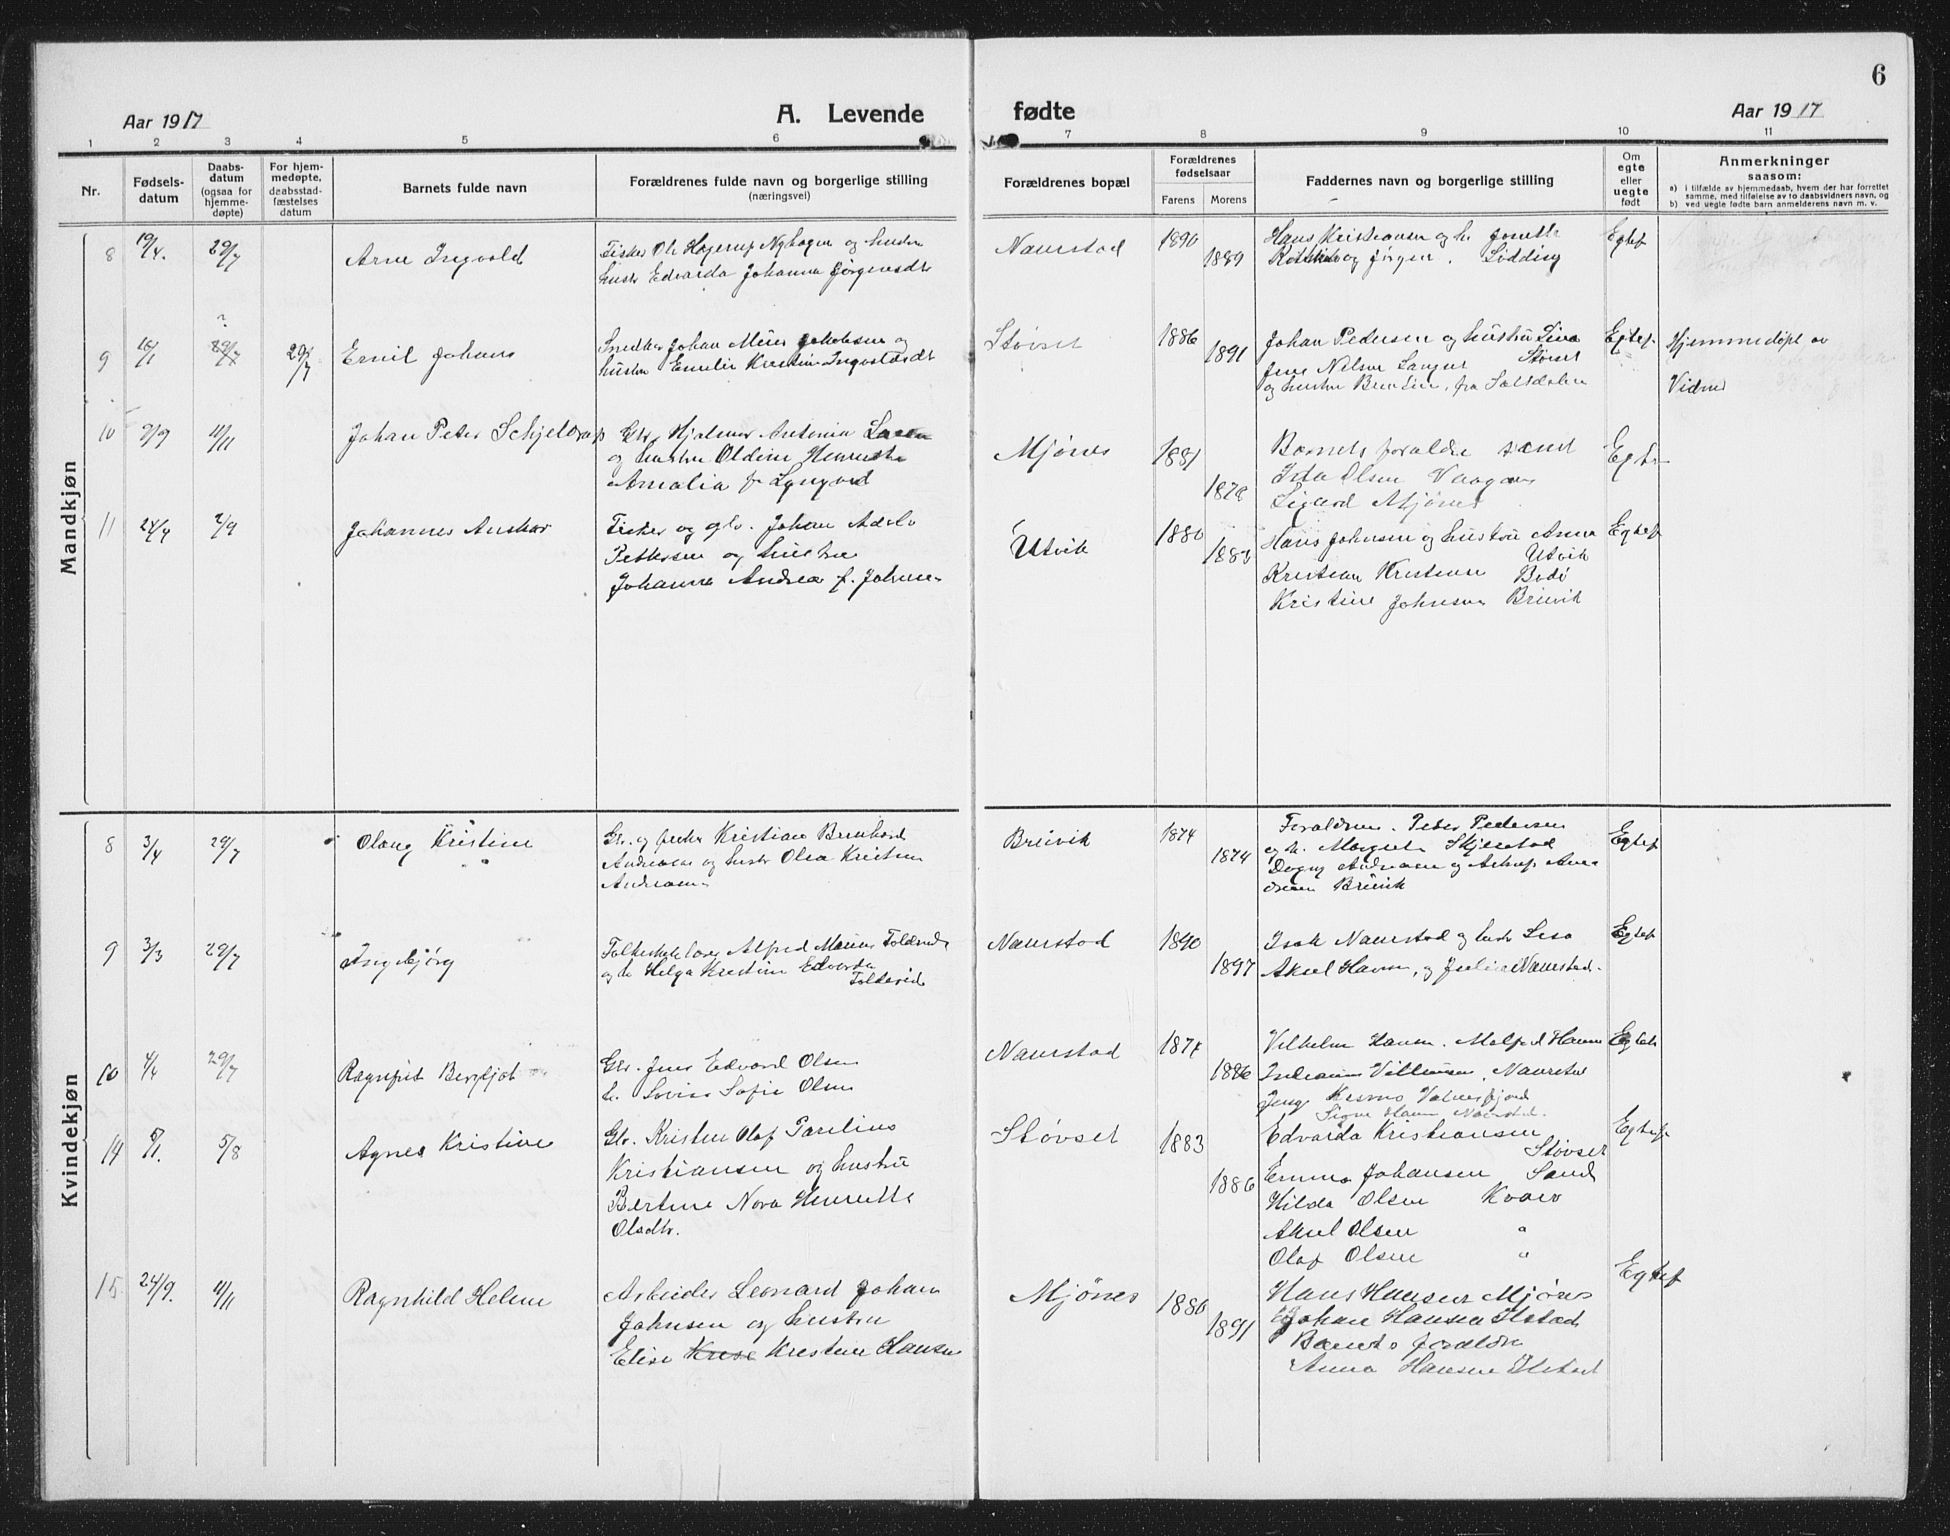 6
Aar 1917
A. Levende fødte
Aar 1917
1 2 3 4 5 6 7 8 9 10 11
Nr.
Fødsels-
datum
Daabs-
datum
(ogsaa for
hjemme-
døpte)
For hjem-
medøpte,
deabsstad-
fæstelses
datum
Barnets fulde navn
Forældrenes fulde navn og borgerlige stilling
(næringsvei)
Forældrenes bopæl
Forældrenes
fødselsaar
Farens Morens
Faddernes navn og borgerlige stilling
Om
egte
eller
uegte
født
Anmerkninger
saasom:
a) i tilfælde av hjemmedaab, hvem der har forrettet
samme, med tilføielse av to daabsvidners navn, og
b) ved uegte fødte barn anmelderens navn m. v.
Mandkjøn
8 19/4. 29/7 Arne Ingvold
Fisker Ole Hagerup Nyhagen og hustru
hustr Edvarda Johanna Jørgensdtr
Naurstad 1890 1889
Hans Kristiansen og h.
og Jørgen
Egtef
9 16/1 29/7 29/7 Emil Johans
Snedker Johan Meier Jakobsen og
hustru Emilie Kristine Ingvoldsdtr
Støvset 1886 1891
Johan Pedersen og hustru Lina
Støvset
Jens Nilsen
og hustru
Egtef.
Hjemmedøpt av
10 9/9 11/11 Johan Peter Schjeldrup
Gbr. Hjalmar Antonia
og hustru Oldine Henrikke
Amalia f. Lyngved
Mjønes 1881 1878
Barnets forældre samt
Ida Olsen
Sigurd Mjønes
Egtef
11 24/4 2/9 Johannes Anskar
Fisker og gbr. Johan Adolv
Pettersen og hustru
Johanna Andrea f. Johnsen
Utvik 1880 1883
Hans Johnsen og hustru Anna
Utvik
Kristian Kristiansen Bodø
Kristine Johnsen Breivik
Egtef
Kvindekjøn
8 3/4 29/7 Olaug Kristine
Gbr. og fisker Kristian Bernhard
Andreasen og hustr Olea Kristine
Andreasen
Breivik 1874 1874
Forældrene. Peter Pedersen
og h. Margrete Skjelstad
Dagny Andreasen og
Breivik
Egtef
9 3/3 29/7 Ingebjørg
Folkeskolelærer Alfred
og h Helga Kristine Edvarda
Naurstad 1890 1897
Isak Naurstad og hustr Lisa
Aksel Hansen, og Julie Naurstad.
Egtef
10 4/4 29/7 Ragnfrid Bergljot
Gbr. Jens Edvard Olsen
h. Lovise Sofie Olsen
Naurstad 1886
Vilhelm Hansen.
Naurstad
Jens
Signe Hansen Naurstad.
14 5/8 Agnes Kristine
Gbr. Kristen Olaf Parelius
Kristiansen og hustru
Bertine Nora Henrette
Olsdtr.
Støvset 1883 1886
Edvarda Kristiansen
Støvset
Emma Johansen Sand
Hilda Olsen Kvarv
Aksel Olsen "
Olaf Olsen "
Egtef
15 24/9. 11/11 Ragnhild Helene
Arbeider Leonard Johan
Johnsen og hustru
Elise Kristine Hansen
Mjønes 1880 1891
Hans Hansen Mjønes
Johan Hansen Ilstad
Barnets forældre
Anna Hansen Ilstad
Egtef